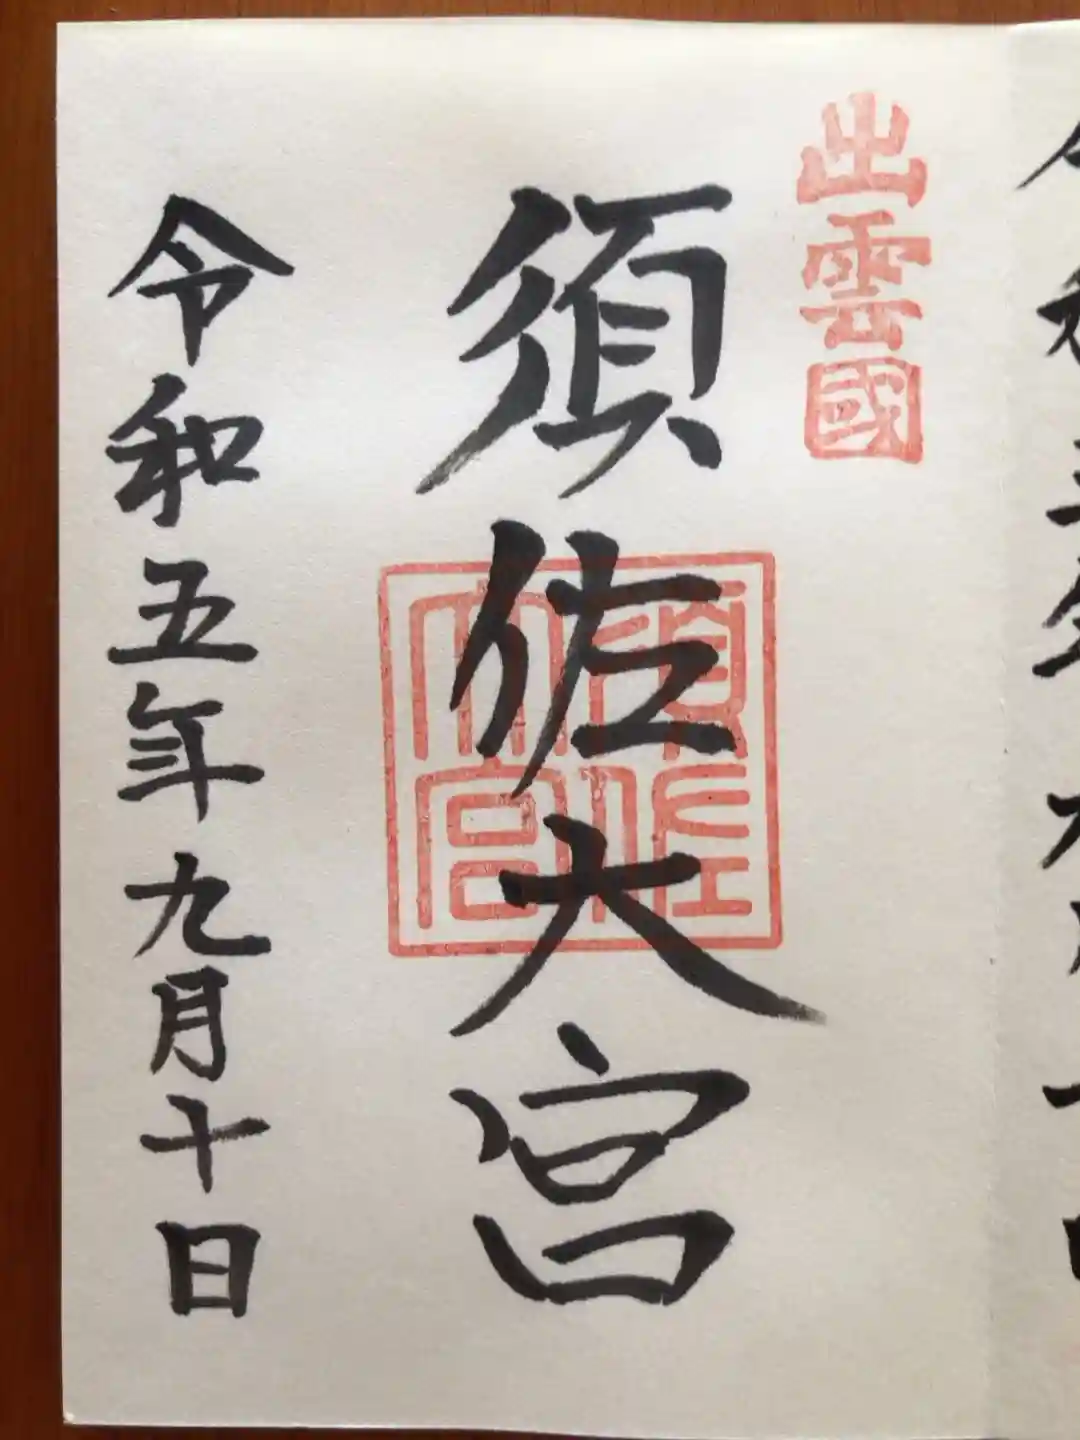 出雲國
須佐大宮
須佐
大宮
令和五年九月十日